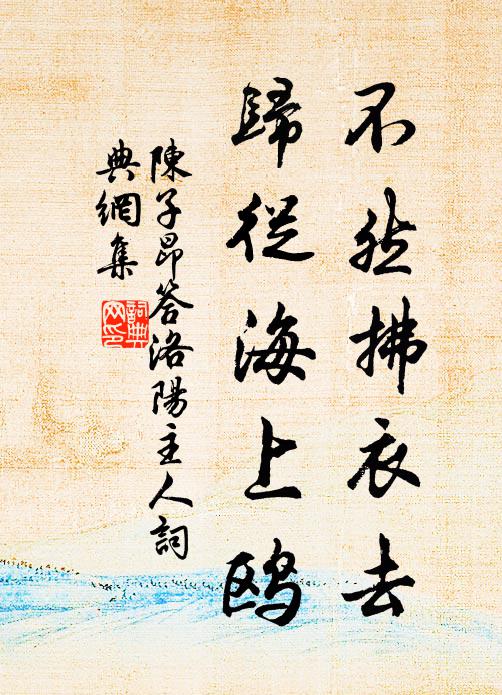 不然拂衣去
歸從海上鷗
陳子昂答洛陽主人詞
典網集
詞典
网印